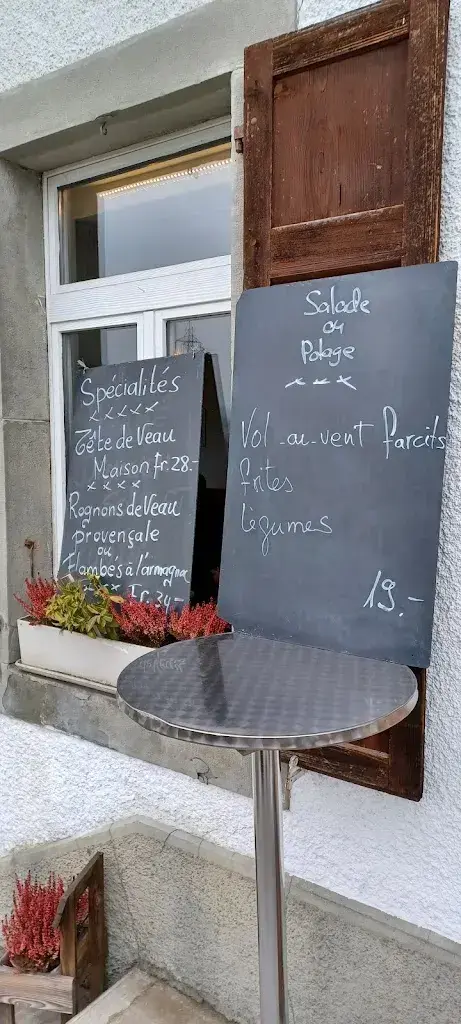 Spécialités
x x x x x
Tête de Veau
Maison Fr. 28.-
x x x x
Rognons de Veau
provençale
ou
Flambés à l'armagnac
Fr. 34.-
Salade
ou
Potage
x x x
Vol-au-vent farcits
frites
légumes
19.-